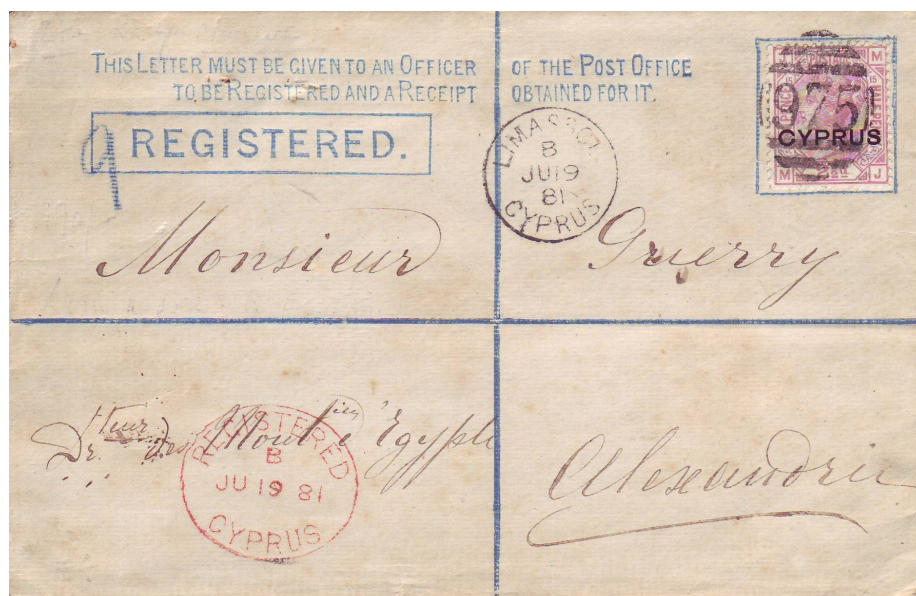 THIS LETTER MUST BE GIVEN TO AN OFFICER OF THE POST OFFICE
TO BE REGISTERED AND A RECEIPT OBTAINED FOR IT.
REGISTERED.
9
LIMASSOL
B
JU 19
81
CYPRUS
975
CYPRUS
M
M J
Monsieur Guerry
Dr. des Egypte
REGISTERED
B
JU 19 81
CYPRUS
Alexandrie